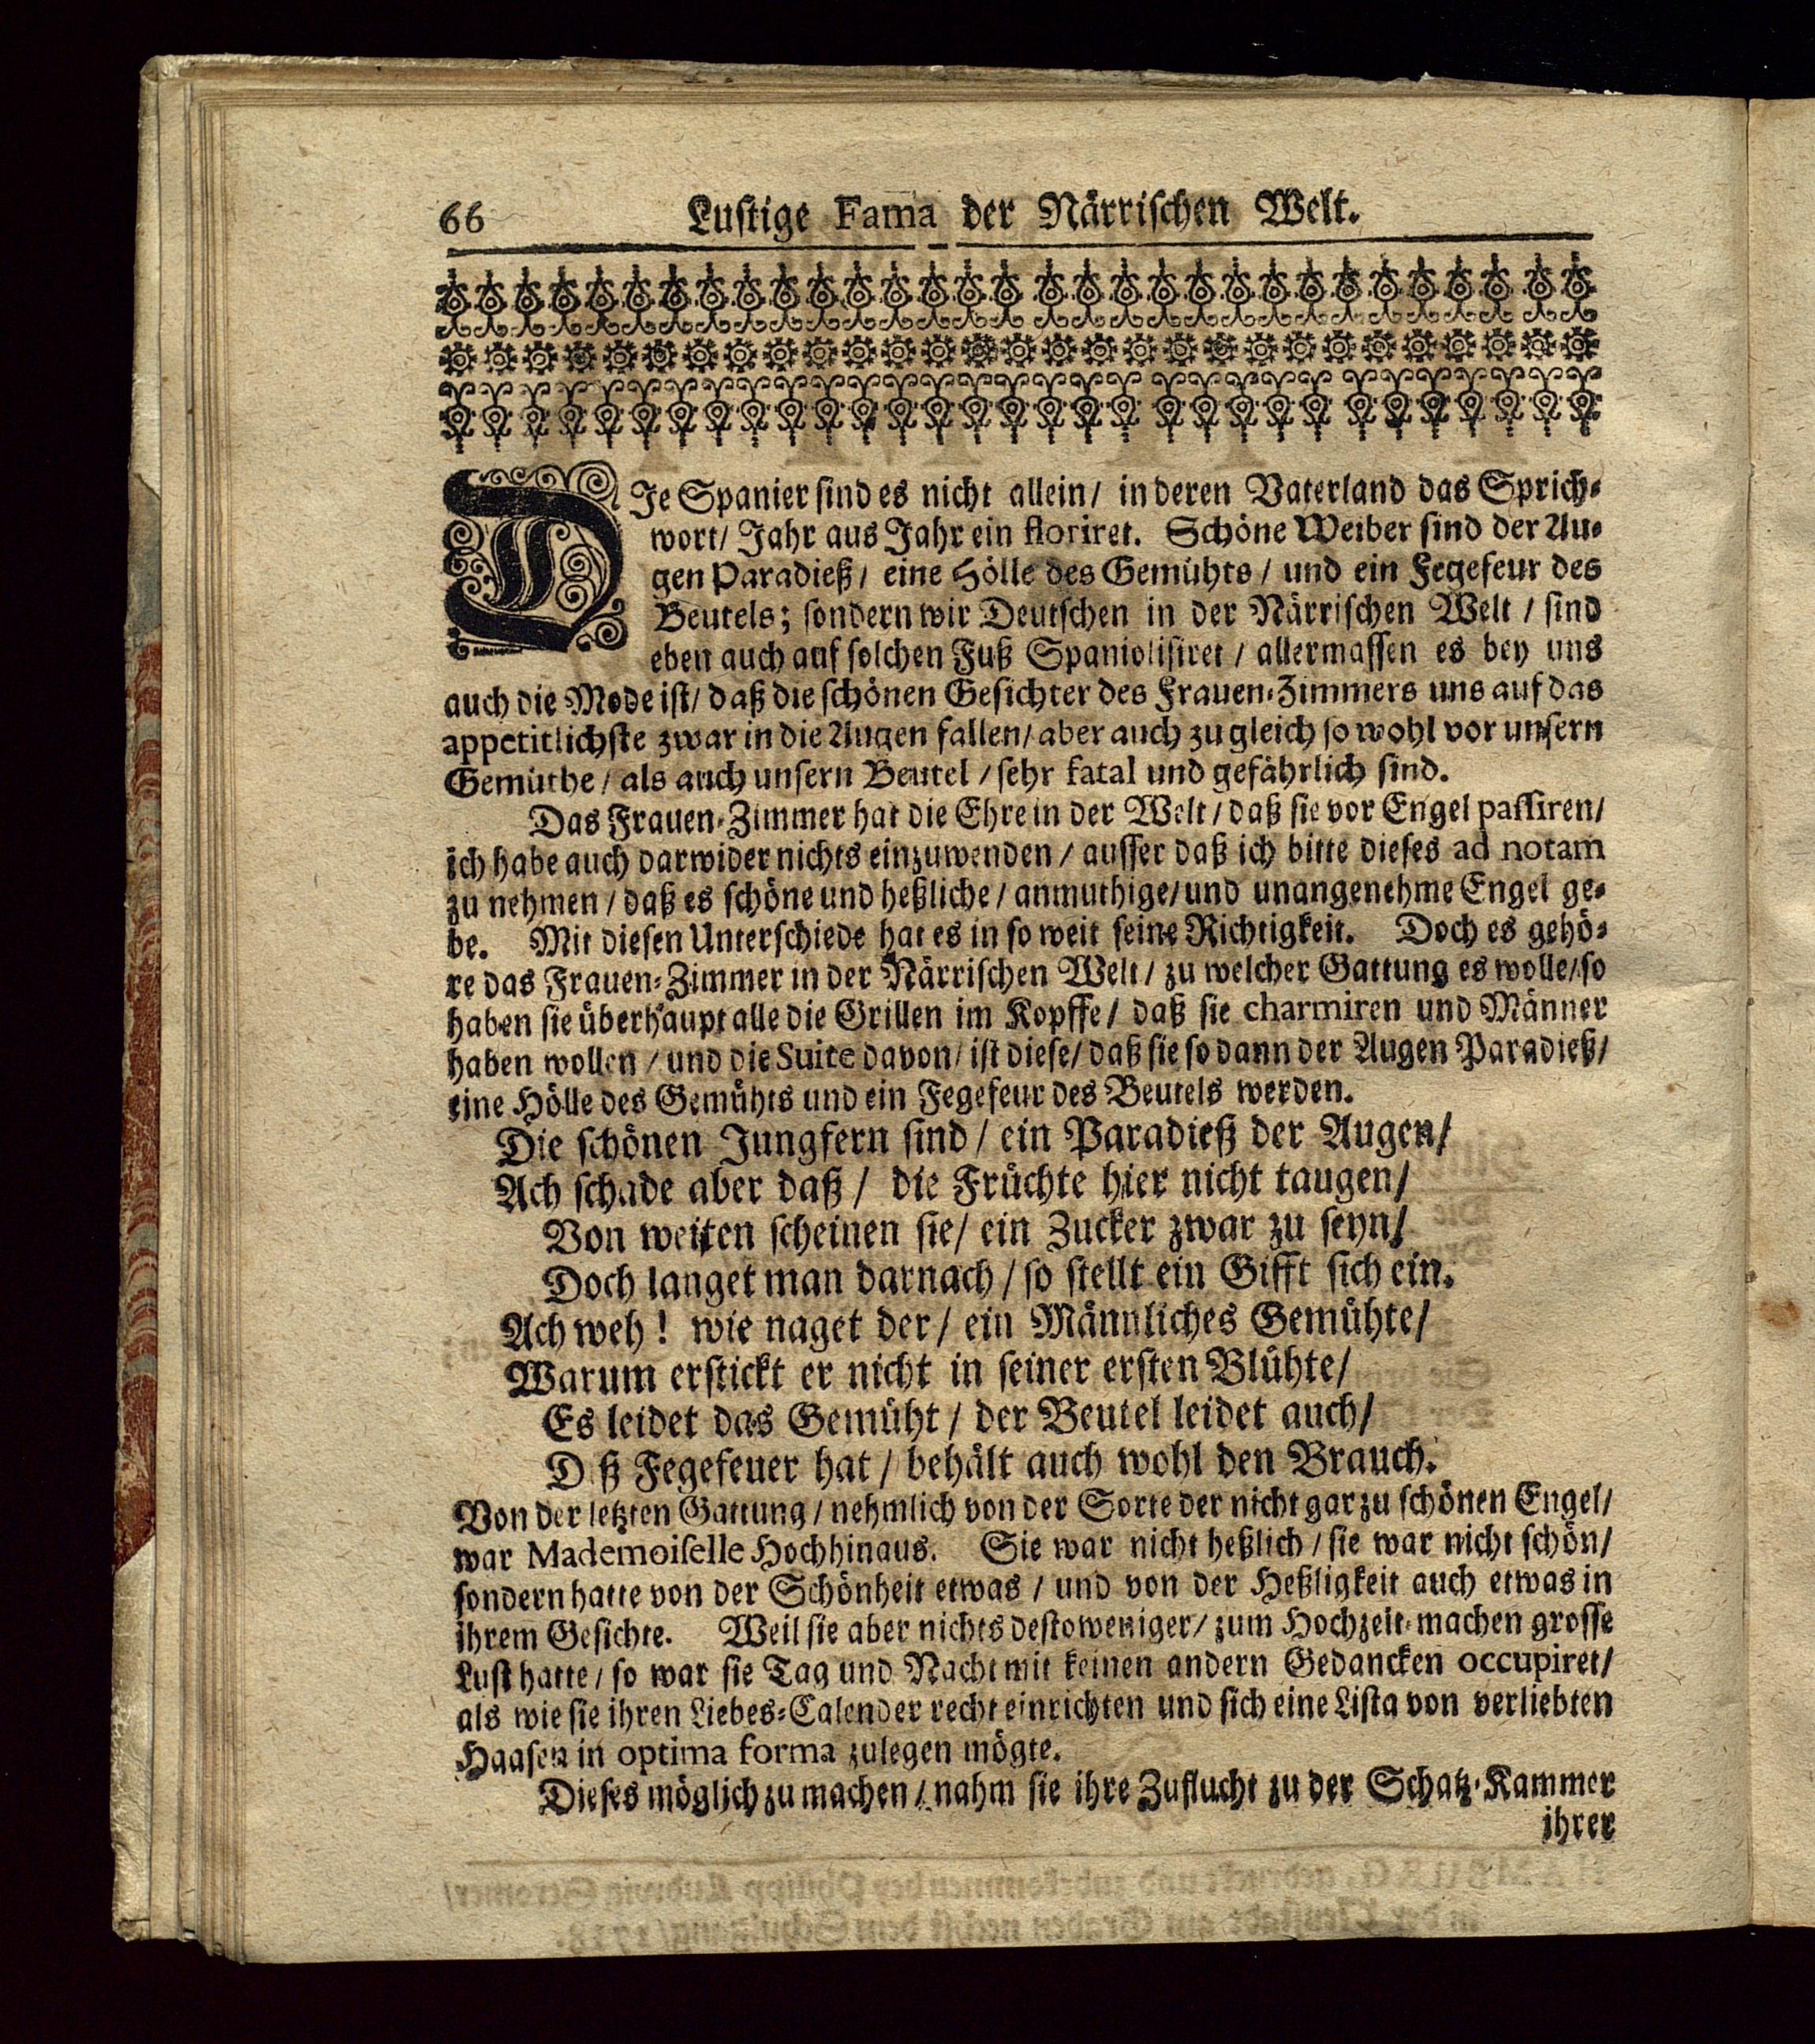 66 Lustige Fama der Närrischen Welt.
DJe Spanier sind es nicht allein/ in deren Vaterland das Sprich-
wort/ Jahr aus Jahr ein floriret. Schöne Weiber sind der Au-
gen Paradieß/ eine Hölle des Gemühts/ und ein Fegefeur des
Beutels; sondern wir Deutschen in der Närrischen Welt/ sind
eben auch auf solchen Fuß Spaniolisiret/ allermassen es bey uns
auch die Mode ist/ daß die schönen Gesichter des Frauen-Zimmers uns auf das
appetitlichste zwar in die Augen fallen/ aber auch zu gleich so wohl vor unsern
Gemüthe/ als auch unsern Beutel/ sehr fatal und gefährlich sind.
Das Frauen-Zimmer hat die Ehre in der Welt/ daß sie vor Engel passiren/
ich habe auch darwider nichts einzuwenden/ ausser daß ich bitte dieses ad notam
zu nehmen/ daß es schöne und heßliche/ anmuthige/ und unangenehme Engel ge-
be. Mit diesen Unterschiede hat es in so weit seine Richtigkeit. Doch es gehö-
re das Frauen-Zimmer in der Närrischen Welt/ zu welcher Gattung es wolle/ so
haben sie überhaupt alle die Grillen im Kopffe/ daß sie charmiren und Männer
haben wollen/ und die Suite davon/ ist diese/ daß sie so dann der Augen Paradieß/
eine Hölle des Gemühts und ein Fegefeur des Beutels werden.
Die schönen Jungfern sind/ ein Paradieß der Augen/
Ach schade aber daß/ die Früchte hier nicht taugen/
Von weiten scheinen sie/ ein Zucker zwar zu seyn/
Doch langet man darnach/ so stellt ein Gifft sich ein.
Ach weh! wie naget der/ ein Männliches Gemühte/
Warum erstickt er nicht in seiner ersten Blühte/
Es leidet das Gemüht/ der Beutel leidet auch/
D ß Fegefeuer hat/ behält auch wohl den Brauch.
Von der letzten Gattung/ nehmlich von der Sorte der nicht gar zu schönen Engel/
war Mademoiselle Hochhinaus. Sie war nicht heßlich/ sie war nicht schön/
sondern hatte von der Schönheit etwas/ und von der Heßligkeit auch etwas in
ihrem Gesichte. Weil sie aber nichts destoweniger/ zum Hochzeit-machen grosse
Lust hatte/ so war sie Tag und Nacht mit keinen andern Gedancken occupiret/
als wie sie ihren Liebes-Calender recht einrichten und sich eine Lista von verliebten
Haasen in optima forma zulegen mögte.
Dieses möglich zu machen/ nahm sie ihre Zuflucht zu der Schatz-Kammer
ihrer